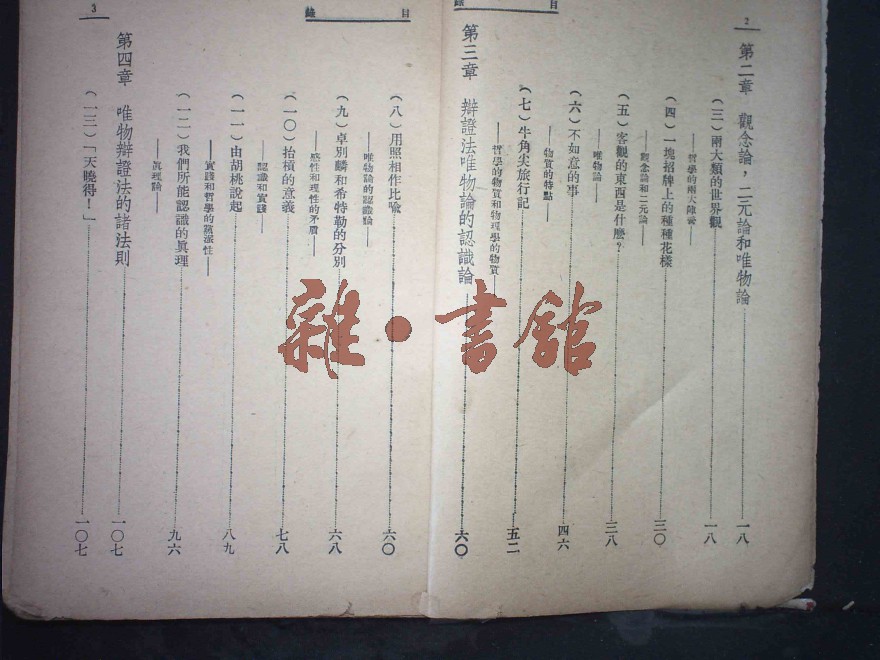 2
第二章 觀念論，二元論和唯物論 一八
（三）兩大類的世界觀 一八
——哲學的兩大陣營——
（四）一塊招牌上的種種花樣 三〇
——觀念論和二元論——
（五）客觀的東西是什麽？ 三八
——唯物論——
（六）不如意的事 四六
——物質的特點——
（七）牛角尖旅行記 五二
——哲學的物質和物理學的物質——
第三章 辯證法唯物論的認識論 六〇
目 錄
（八）用照相作比喩 六〇
——唯物論的認識論——
（九）卓別麟和希特勒的分別 六八
——感性和理性的矛盾——
（一〇）抬槓的意義 七八
——認識和實踐——
（一一）由胡桃說起 八九
——實踐和哲學的黨派性——
（一二）我們所能認識的眞理 九六
——眞理論——
第四章 唯物辯證法的諸法則 一〇七
（一三）「天曉得！」 一〇七
目 錄
3
雜·書館